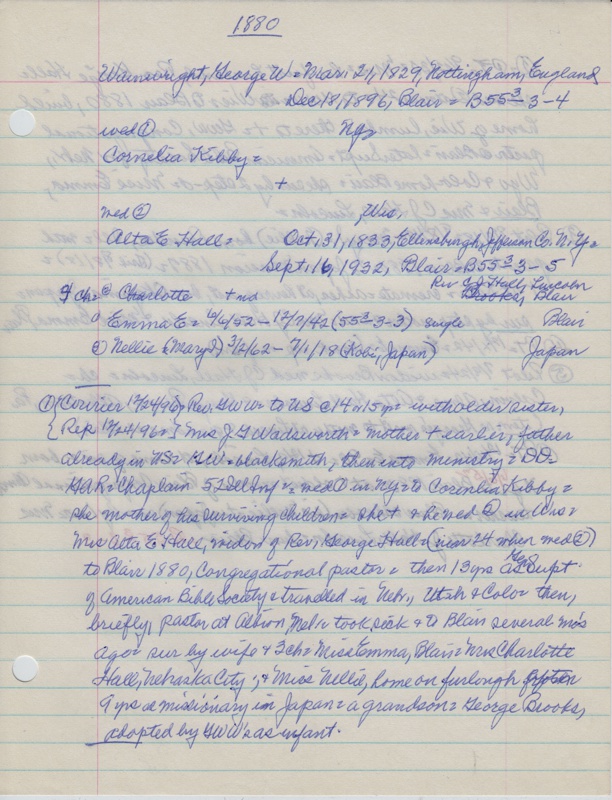 1880
Wainwright, George W = Mar. 21, 1829, Nottingham, England
Dec 18, 1896, Blair = B 55 3-3-4
wed ① NY=
Cornelia Kibby =
+
wed ② Wis,
Alta E. Hall = Oct, 31, 1833, Ellensburgh, Jefferson Co. N.Y=
Sept. 16, 1932, Blair = B 55 3-3-5
Rev G J Hall, Lincoln
ch= Charlotte + md Brooks, Blair
Emma E = 4/6/52 - 12/7/42 (55 3-3-3) single Blair
Nellie (Mary) 3/2/62 - 7/1/18 (Kobi, Japan) Japan
① {Courier 12/24/96} Rev. GWW= to US c 14 or 15 yrs with older sister,
{Rep 12/24/96=} Mrs J. G Wadsworth = Mother + earlier, father
already in US= GW= blacksmith, then into ministry = DD=
GAR= Chaplain 51 Ill Inf = wed ① in NY= to Cornelia Kibby=
she mother of his surviving children = she + & he wed ② in Wis=
Mrs Alta E Hall, widow of Rev, George Hall = (near 24 when wed ②)
to Blair 1880, Congregational pastor = then 13 yrs as Supt.
of American Bible Society & travelled in Nebr., Utah & Colo = then,
briefly, pastor at Albion Neb = took sick & to Blair several mo's
ago = sur by wife & 3 ch = Miss Emma, Blair = Mrs Charlotte
Hall, Nebraska City; & Miss Nellie, home on furlough after
9 yrs as missionary in Japan = a grandson = George Brooks,
adopted by GWW's as infant.